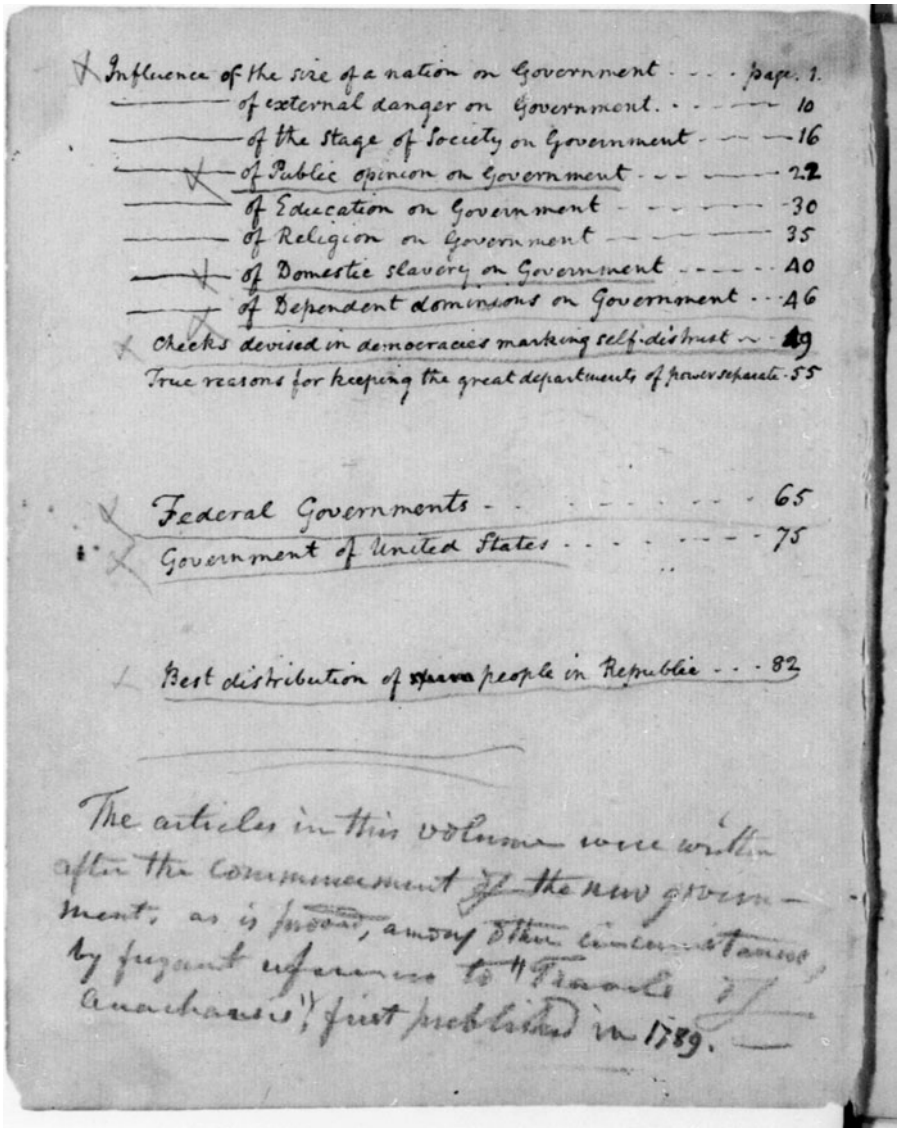 Influence of the size of a nation on Government - - - - page. 1.
——— of external danger on Government. - - - - 10
——— of the stage of Society on Government - - - - 16
——— of Public opinion on Government - - - - 22
——— of Education on Government - - - - 30
——— of Religion on Government - - - - 35
——— of Domestic slavery on Government - - - - 40
——— of Dependent dominions on Government - - - 46
Checks devised in democracies marking self-distrust - - 49
True reasons for keeping the great departments of power separate - 55
Federal Governments - - - - - - - 65
Government of United States - - - - - - - 75
Best distribution of people in Republic - - - 82
The articles in this volume were written
after the commencement of the new govern-
ment, as is proved, among other circumstances,
by frequent reference to "Travels of
Anacharsis", first published in 1789. —